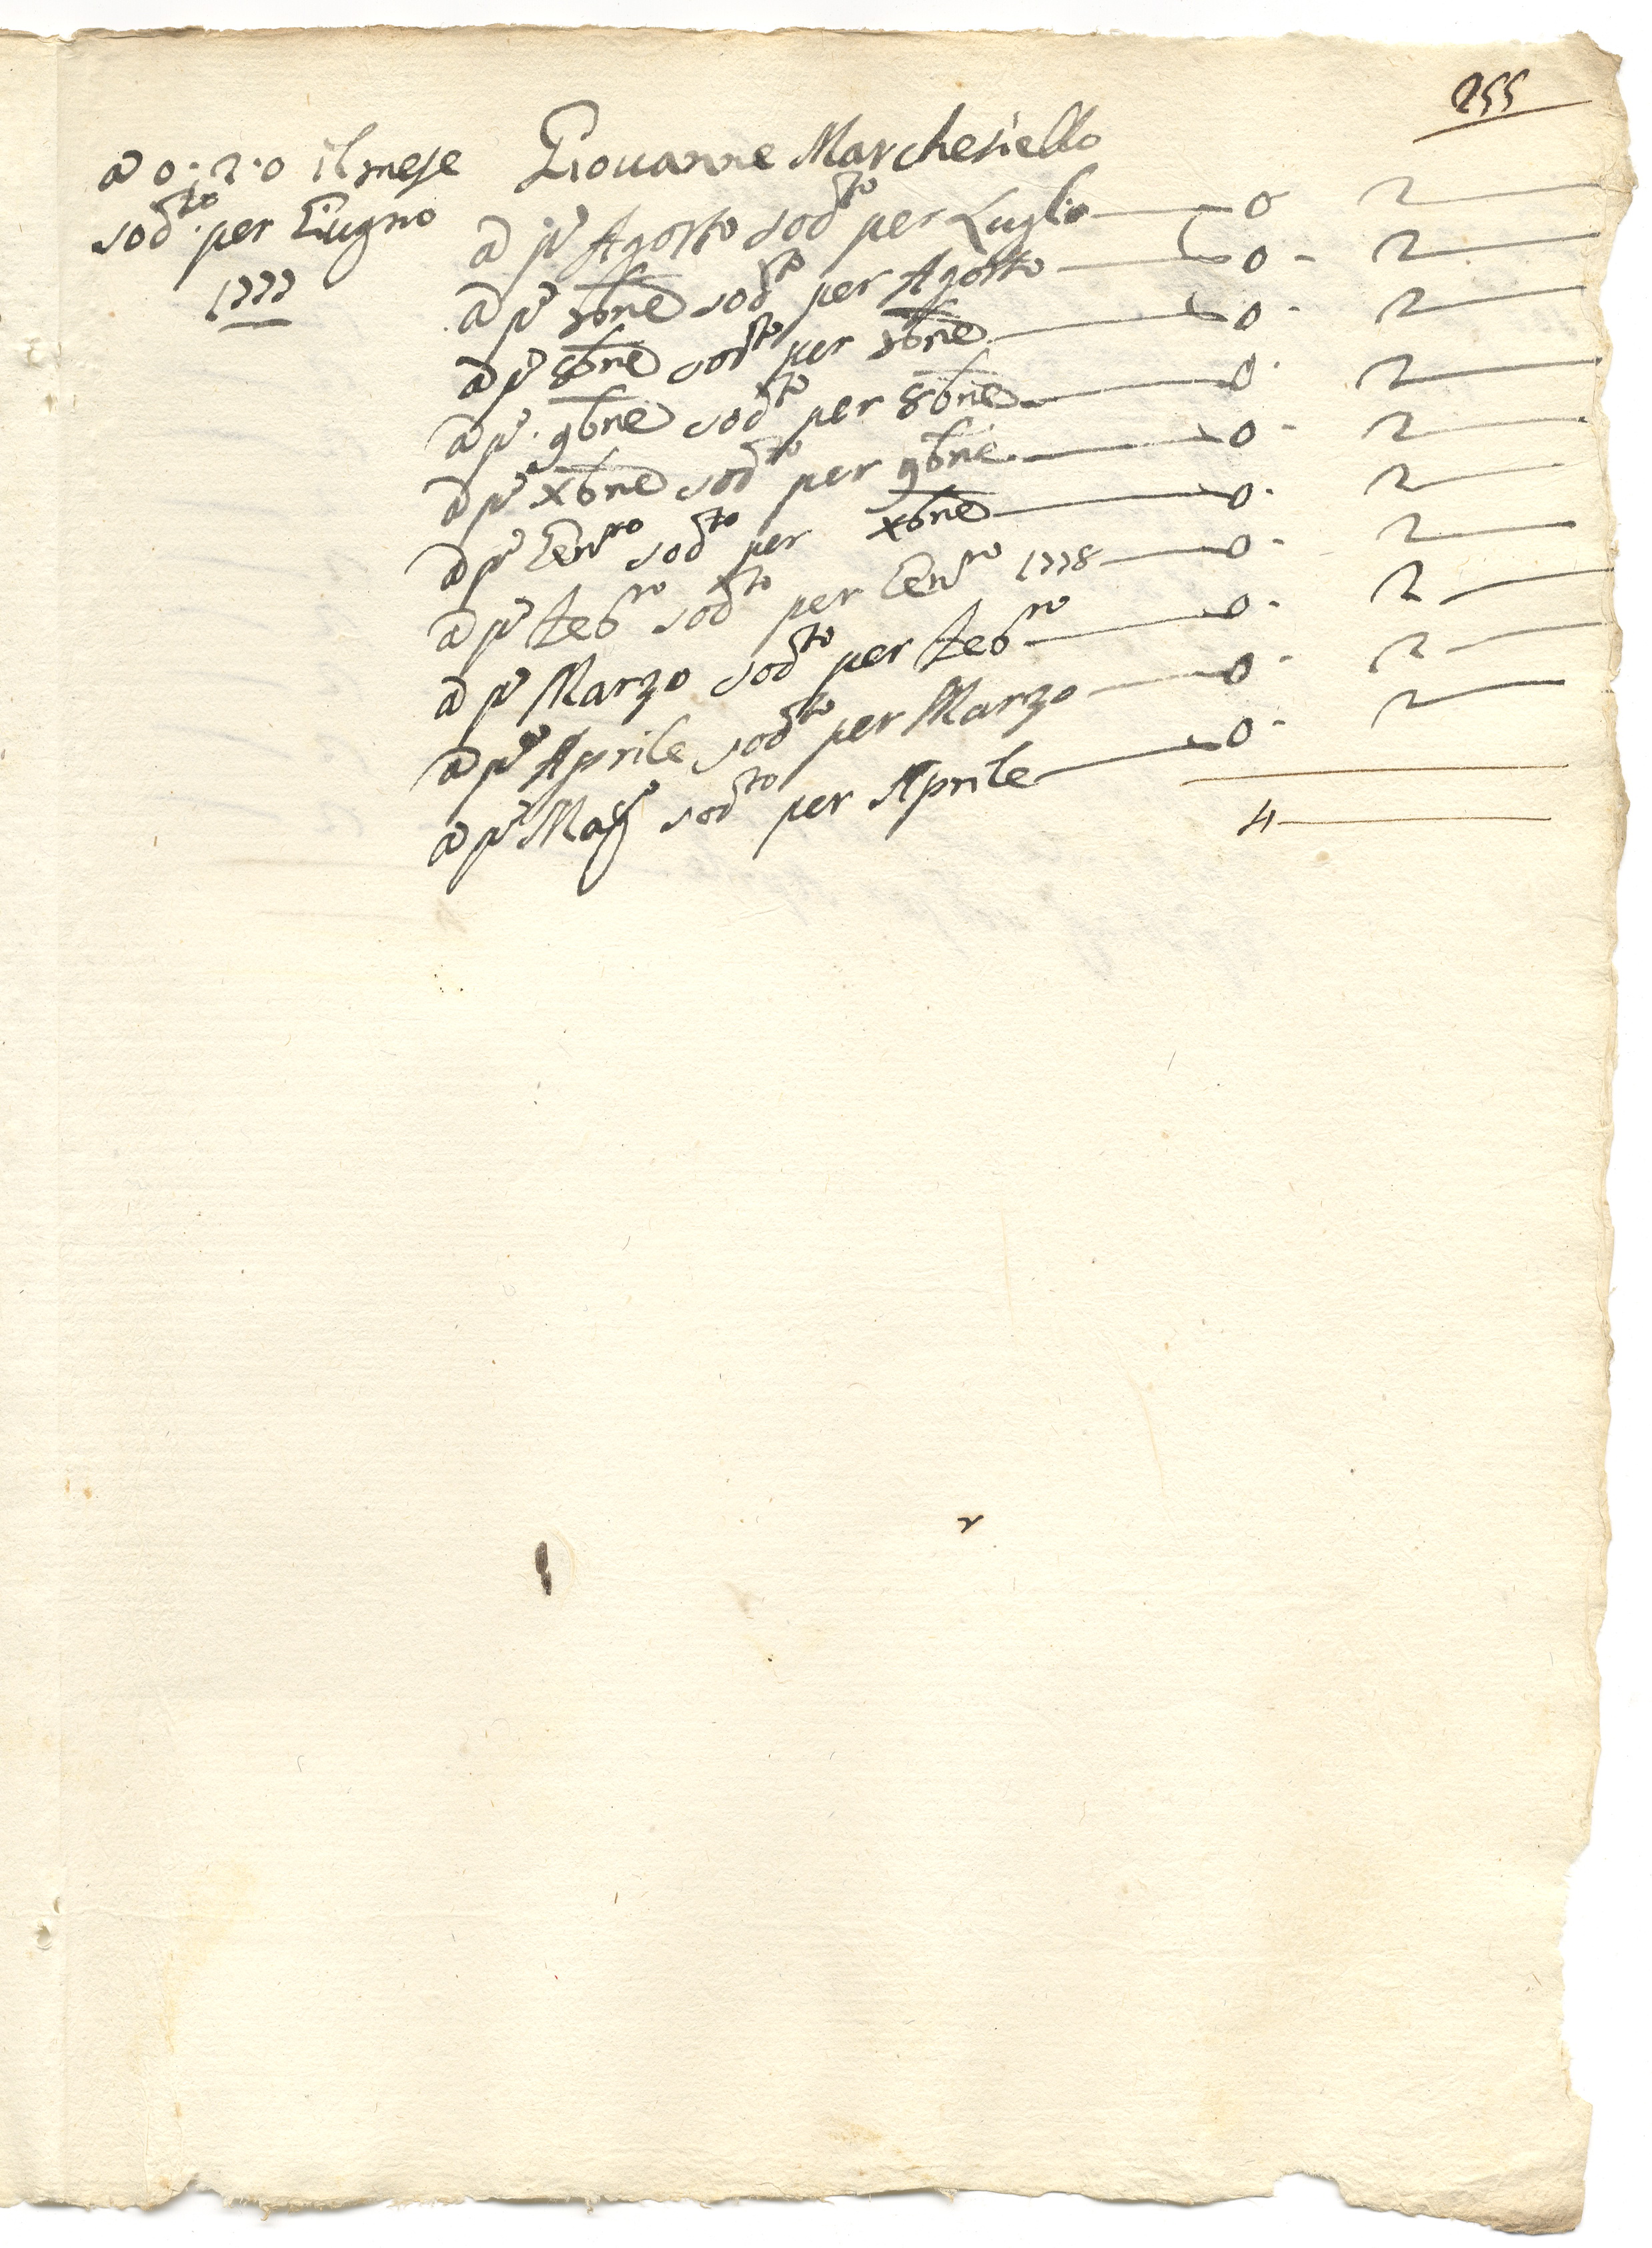 255
a 0:2:0 il mese
sod.to per Giugno
1777
Giouanne Marchesiello
a p.o Agosto sod.to per Luglio — 0 2 —
a p.o 7bre sod.to per Agosto — 0 - 2 —
a p.o 8bre sod.to per 7bre — 0 - 2 —
a p.o 9bre sod.to per 8bre — 0 - 2 —
a p.o Xbre sod.to per 9bre — 0 - 2 —
a p.o Gen.ro sod.to per Xbre — 0 - 2 —
a p.o Feb.ro sod.to per Gen.ro 1778 — 0 - 2 —
a p.o Marzo sod.to per Feb.ro — 0 - 2 —
a p.o Aprile sod.to per Marzo — 0 - 2 —
a p.o Mag.o sod.to per Aprile — 0 - 2 —
4 —